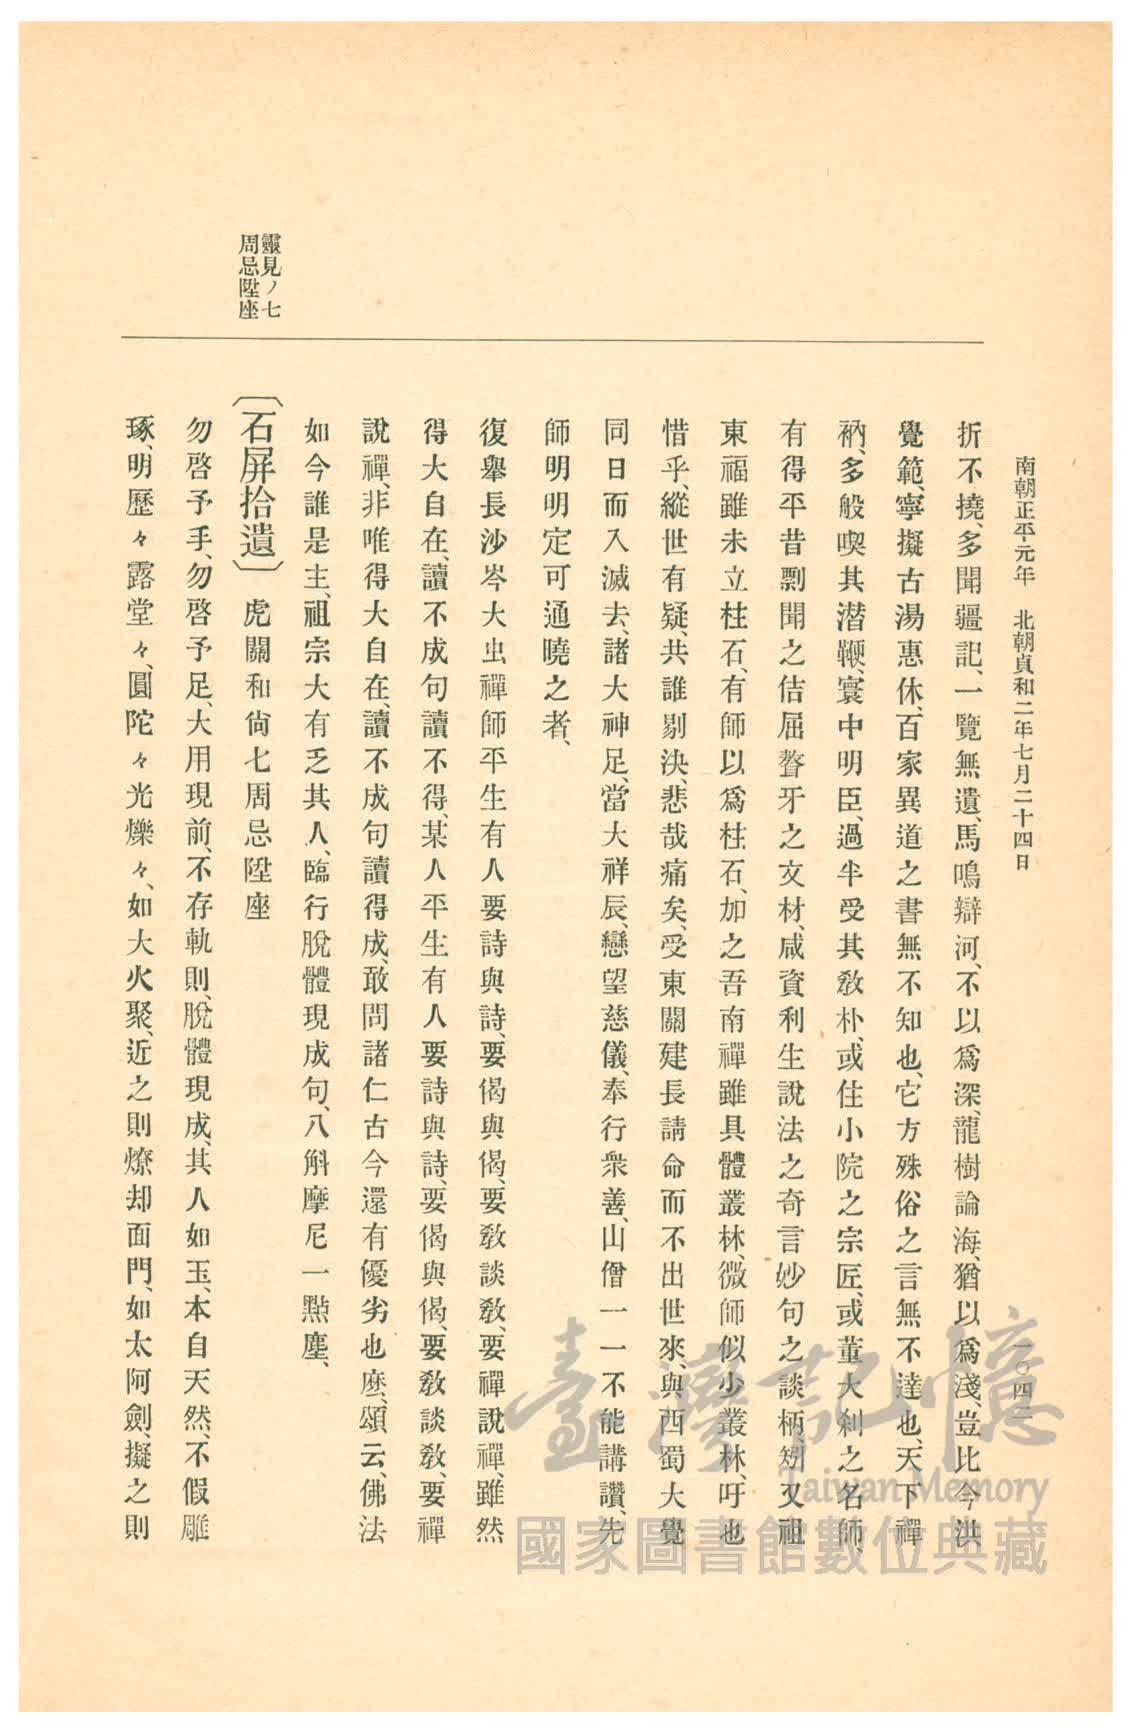 南朝正平元年　北朝貞和二年七月二十四日
一〇四二
折不撓、多聞疆記、一覽無遺、馬鳴辯河、不以爲深、龍樹論海、猶以爲淺、豈比今洪
覺範、寧擬古湯惠休、百家異道之書無不知也、它方殊俗之言無不達也、天下禪
衲、多般喫其潜鞭、寰中明臣、過半受其敎朴、或住小院之宗匠、或董大刹之名師、
有得平昔剽聞之佶屈聱牙之文材、咸資利生說法之奇言妙句之談柄、矧又祖
東福雖未立柱石、有師以爲柱石、加之吾南禪雖具體叢林、微師似少叢林、吁也
惜乎、縱世有疑、共誰剔決、悲哉痛矣、受東關建長請命而不出世來、與西蜀大覺
同日而入滅去、諸大神足、當大祥辰、戀望慈儀、奉行衆善、山僧一一不能講讚、先
師明明定可通曉之者、
復擧長沙岑大虫禪師平生有人要詩與詩、要偈與偈、要敎談敎、要禪說禪、雖然
得大自在、讀不成句讀不得、某人平生有人要詩與詩、要偈與偈、要敎談敎、要禪
說禪、非唯得大自在、讀不成句讀得成、敢問諸仁古今還有優劣也麽、頌云、佛法
如今誰是主、祖宗大有乏其人、臨行脫體現成句、八斛摩尼一點塵、
靈見ノ七
周忌陞座
〔石屏拾遺〕　虎關和尙七周忌陞座
勿啓予手、勿啓予足、大用現前、不存軌則、脫體現成、其人如玉、本自天然、不假雕
琢、明歷々露堂々、圓陀々光爍々、如大火聚、近之則燎却面門、如太阿劍、擬之則
臺灣記憶
Taiwan Memory
國家圖書館數位典藏